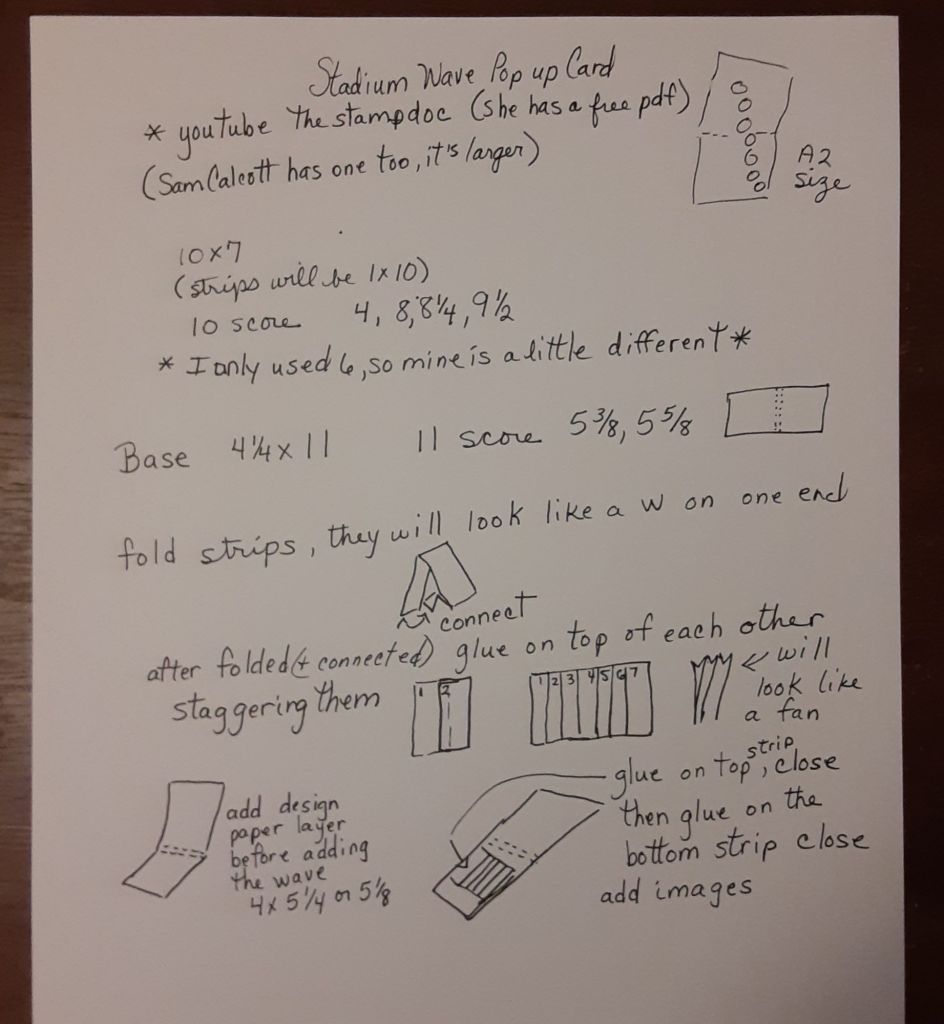 Stadium Wave Pop up Card
* youtube the stampdoc (she has a free pdf)
(Sam Calcott has one too, it's larger)
A2
size
10x7
(strips will be 1x10)
10 score 4, 8, 8 1/4, 9 1/2
* I only used 6, so mine is a little different *
Base 4 1/4 x 11 11 score 5 3/8, 5 5/8
fold strips, they will look like a W on one end
connect
after folded (+ connected) glue on top of each other
staggering them
1 2
1 2 3 4 5 6 7
will
look like
a fan
add design
paper layer
before adding
the wave
4 x 5 1/4 or 5 1/8
glue on top strip, close
then glue on the
bottom strip close
add images